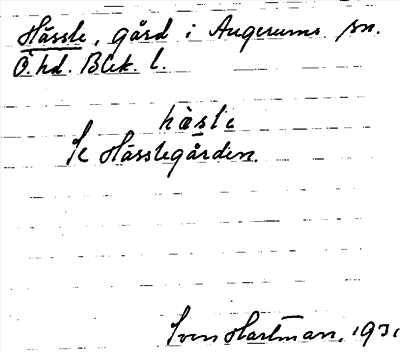 Hässle, gård i Augerums sn.
Ö. hd. Blek. l.
hàsle
Se Hässlegården.
Sven Hartman, 1931